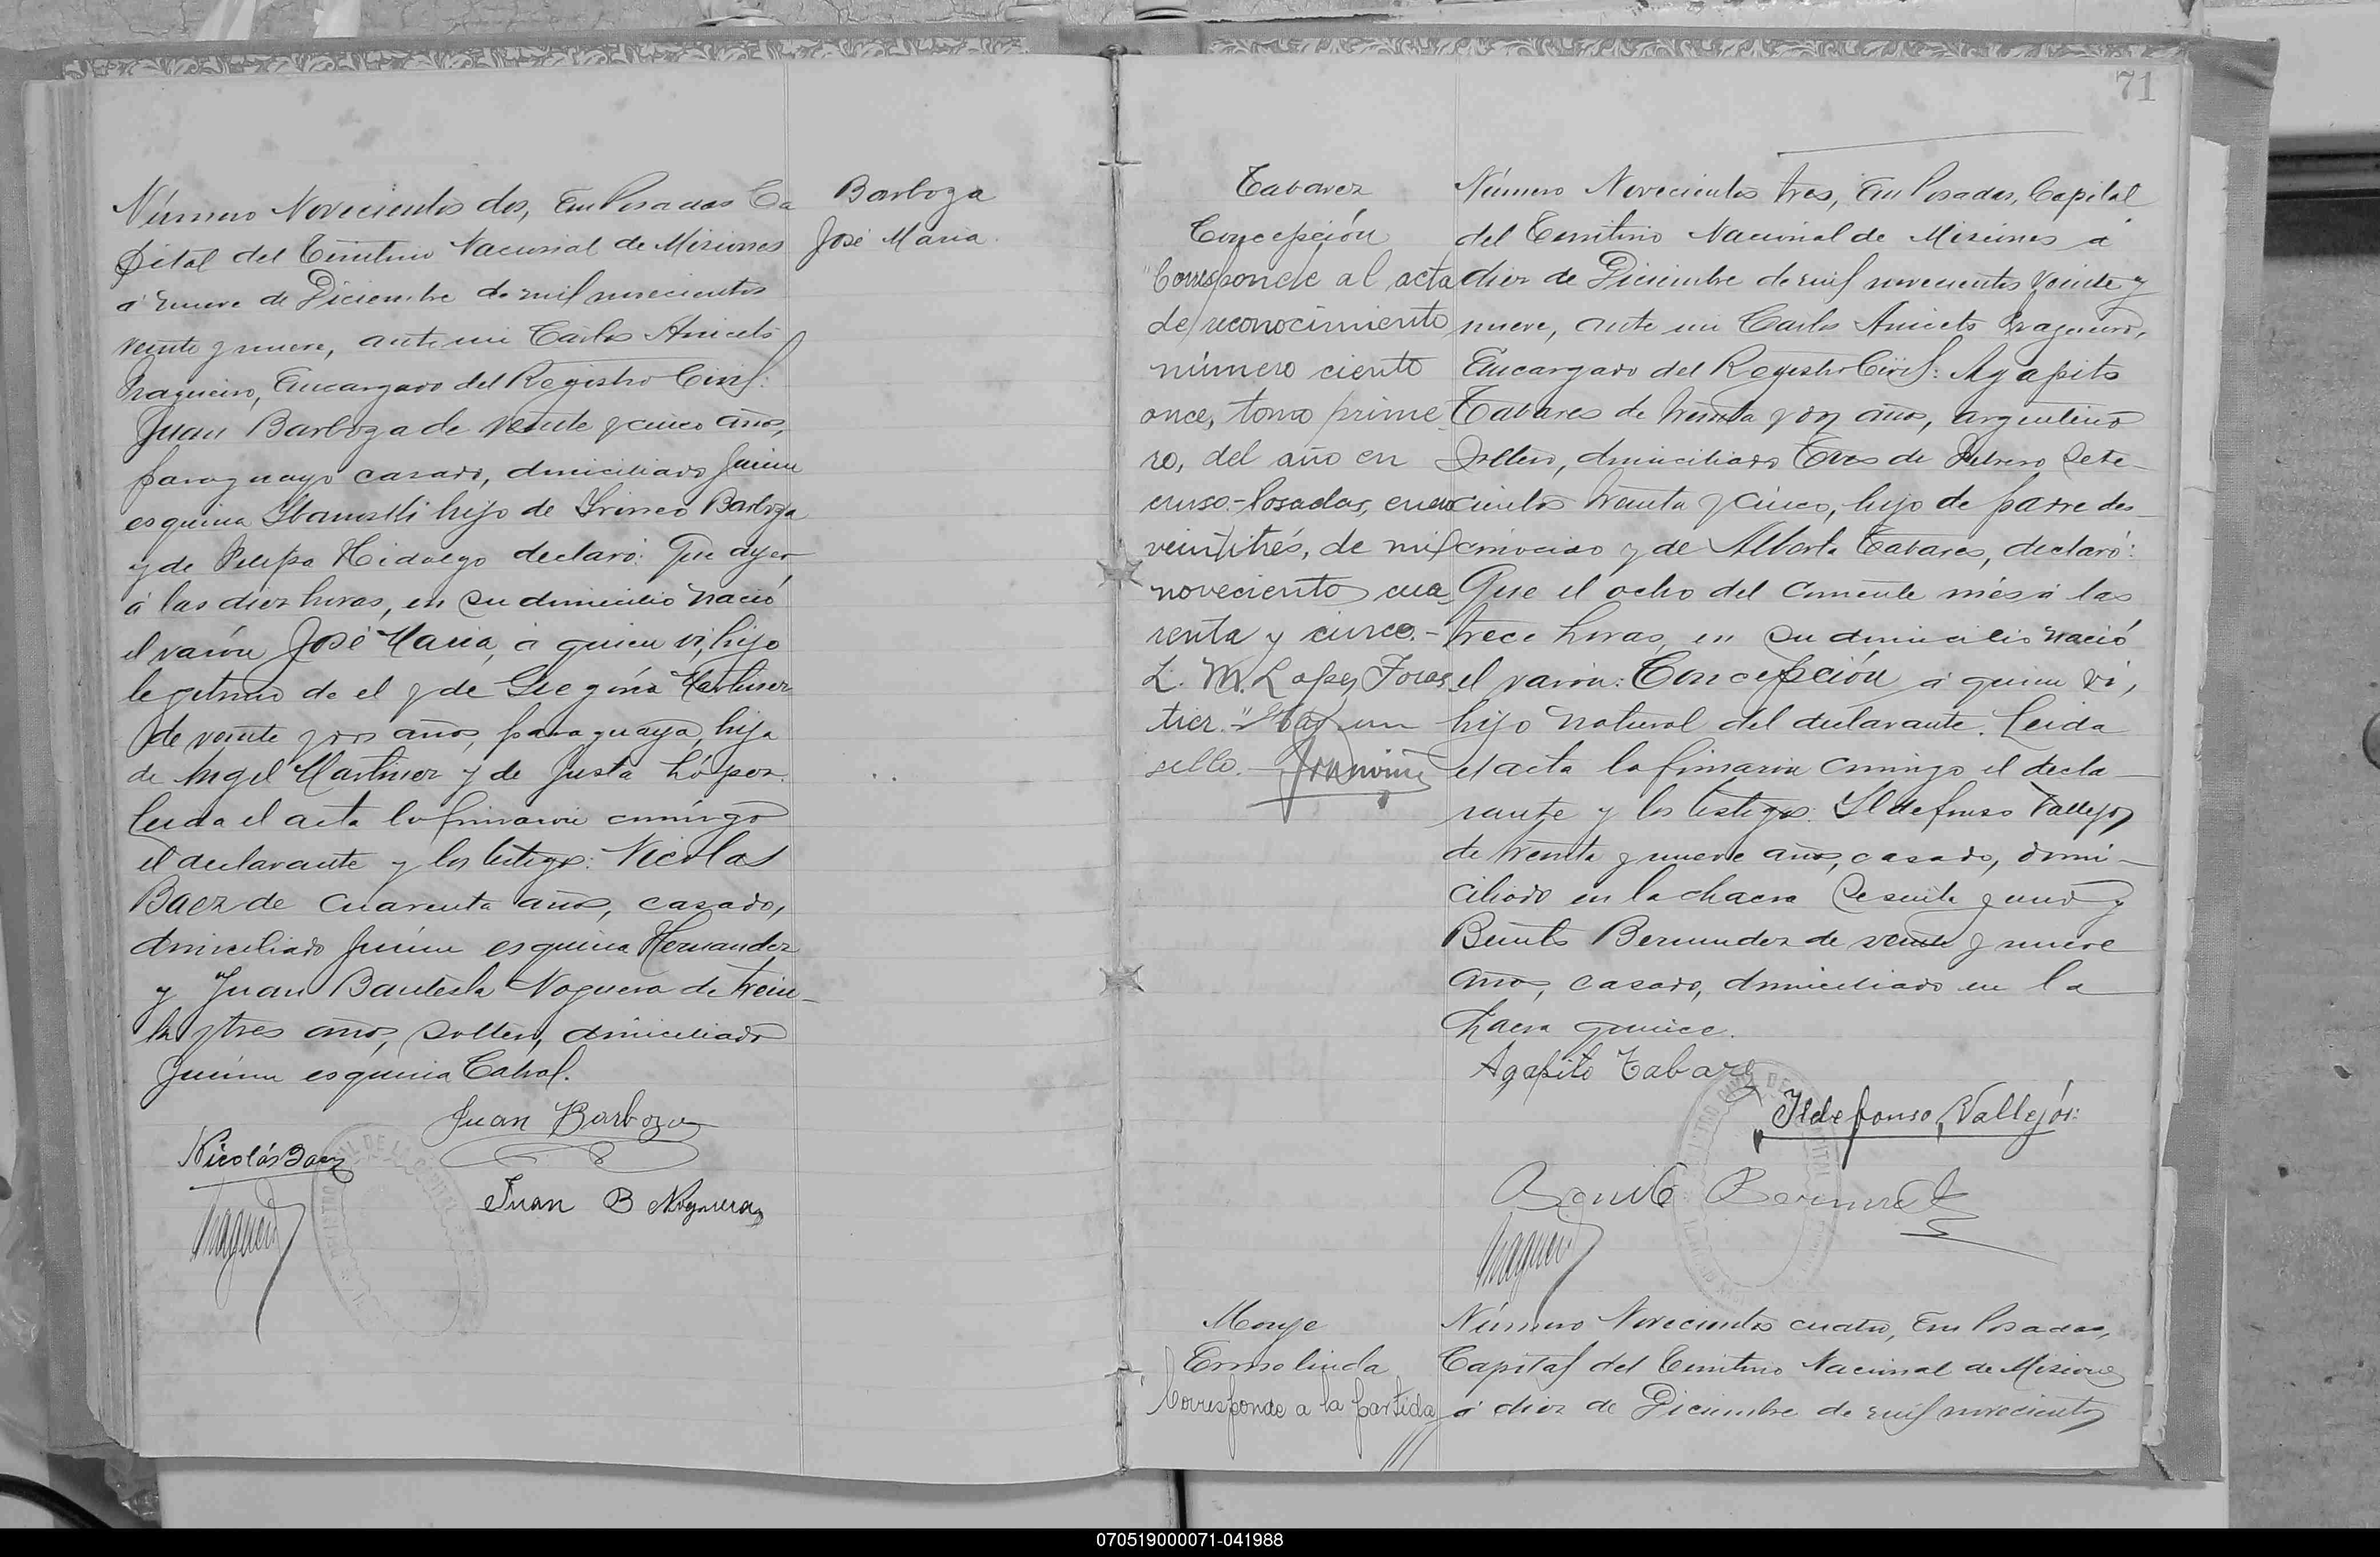 Número Novecientos dos, En Posadas Ca
pital del Territorio Nacional de Misiones
á nueve de Diciembre de mil novecientos
veinte y nueve, ante mi Carlos Aniceto
Encargado del Registro Civil:
Juan Barboza de veinte y cinco años,
paraguayo casado, domiciliado Junin
esquina hijo de Irineo Barboza
y de Felipa Hidalgo declaró: Que ayer
á las diez horas, en su domicilio nació
el varón José Maria, á quien vi, hijo
legitimo de el y de Gregoria Martinez
de veinte y dos años, paraguaya, hija
de Angel Martinez y de Justa López.
Leida el acta la firmaron conmigo
el declarante y los testigos: Nicolas
Baez de cuarenta años, casado,
domiciliado Junin esquina Hernandez
y Juan Bautista Noguera de trein-
ta y tres años, soltero, domiciliado
Junin esquina Cabral.
Juan Barboza
Nicolás Baez
Juan B Noguera
Barboza
José Maria.
71
Tabarez
Concepción
"Corresponde al acta
de reconocimiento
número ciento
once, tomo prime
ro, del año en
curso.-Posadas, enero
veintitrés, de mil
noveciento cua-
renta y cinco.-
L. M. Lopez Foras
tier." Hay un
sello.-
Número Novecientos tres, En Posadas, Capital
del Territorio Nacional de Misiones á
diez de Diciembre de mil novecientos veinte y
nueve, ante mi Carlos Aniceto
Encargado del Registro Civil: Agapito
Tabares de treinta y dos años, argentino
soltero, domiciliado Tres de Febrero sete-
cientos treinta y cinco, hijo de padre des
conocido y de Alberta Tabares, declaró:
Que el ocho del corriente més á las
trece horas, en su domicilio nació
el varón: Concepción á quien vi,
hijo natural del declarante. Leida
el acta la firmaron conmigo el decla-
rante y los testigos: Ildefonso Vallejos
de treinta y nueve años, casado, domi-
ciliado en la chacra sesenta y uno y
Benito Bermudez de veinte y nueve
años, casado, domiciliado en la
chacra quince.
Agapito Tabarez
Ildefonso Vallejós:
Benito Bermudez
Monje
Ermolinda
Corresponde a la partida
Número Novecientos cuatro, En Posadas,
Capital del Territorio Nacional de Misiones
á diez de Diciembre de mil novecientos
070519000071-041988